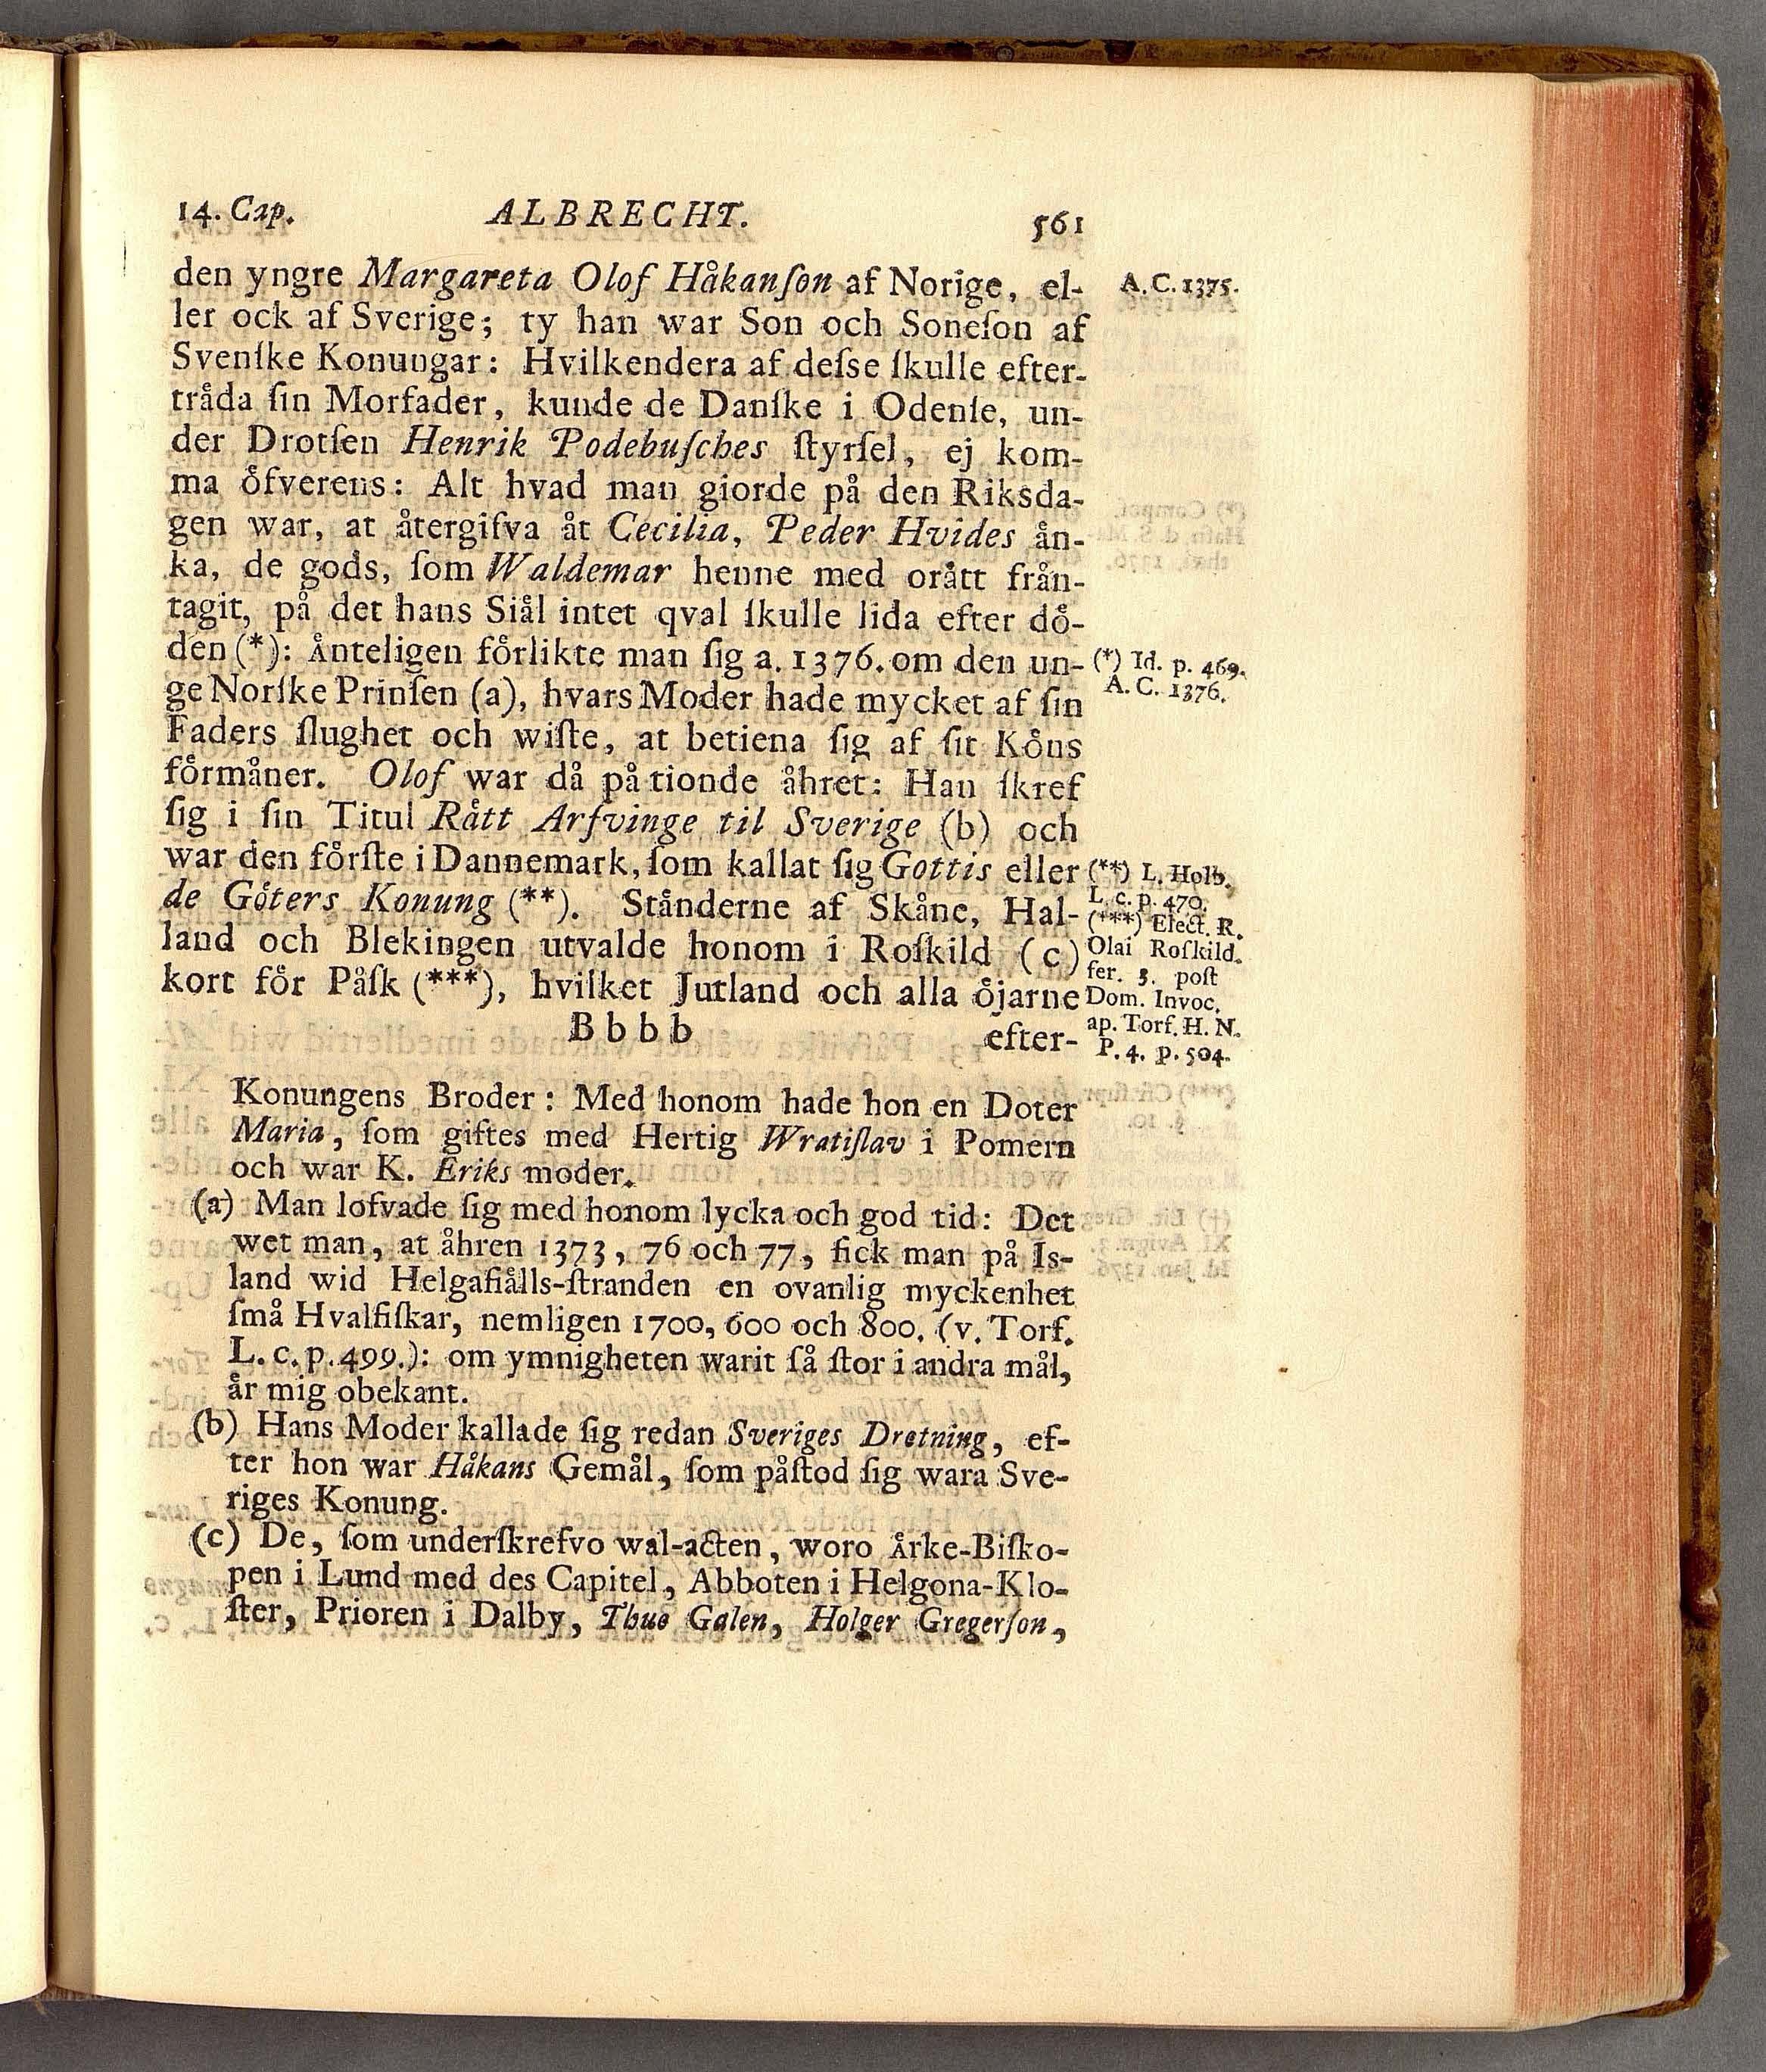 14. Cap. ALBRECHT. 561
den yngre Margareta Olof Håkanſon af Norige, el-
ler ock af Sverige; ty han war Son och Soneſon af
Svenſke Konungar: Hvilkendera af deſse ſkulle efter-
tråda ſin Morfader, kunde de Danſke i Odenſe, un-
der Drotſen Henrik Podebuſches ſtyrſel, ej kom-
ma öfverens: Alt hvad man giorde på den Riksda-
gen war, at återgifva åt Cecilia, Peder Hvides ån-
ka, de gods, ſom Waldemar henne med orått från-
tagit, på det hans Siål intet qval ſkulle lida efter dö-
den (*): Ånteligen förlikte man ſig a. 1376. om den un-
ge Norſke Prinſen (a), hvars Moder hade mycket af ſin
Faders ſlughet och wiſte, at betiena ſig af ſit Köns
förmåner. Olof war då på tionde åhret: Han ſkref
ſig i ſin Titul Rått Arfvinge til Sverige (b) och
war den förſte i Dannemark, ſom kallat ſig Gottis eller
de Göters Konung (**). Stånderne af Skåne, Hal-
land och Blekingen utvalde honom i Roſkild (c)
kort för Påſk (***), hvilket Jutland och alla öjarne
Bbbb efter-
A. C. 1375.
(*) Id. p. 469.
A. C. 1376.
(**) L. Holb.
L. c. p. 470.
(***) Elect. R.
Olai Roſkild.
fer. 3. poſt
Dom. Invoc.
ap. Torf. H. N.
P. 4. p. 504.
Konungens Broder: Med honom hade hon en Doter
Maria, ſom giftes med Hertig Wratiſlav i Pomern
och war K. Eriks moder.
(a) Man lofvade ſig med honom lycka och god tid: Det
wet man, at åhren 1373, 76 och 77, fick man på Is-
land wid Helgafiålls-ſtranden en ovanlig myckenhet
ſmå Hvalfiſkar, nemligen 1700, 600 och 800. (v. Torf.
L. c. p. 499.): om ymnigheten warit ſå ſtor i andra mål,
år mig obekant.
(b) Hans Moder kallade ſig redan Sveriges Dretning, ef-
ter hon war Håkans Gemål, ſom påſtod ſig wara Sve-
riges Konung.
(c) De, ſom underſkrefvo wal-acten, woro Årke-Biſko-
pen i Lund med des Capitel, Abboten i Helgona-Klo-
ſter, Prioren i Dalby, Thue Galen, Holger Gregerſon,